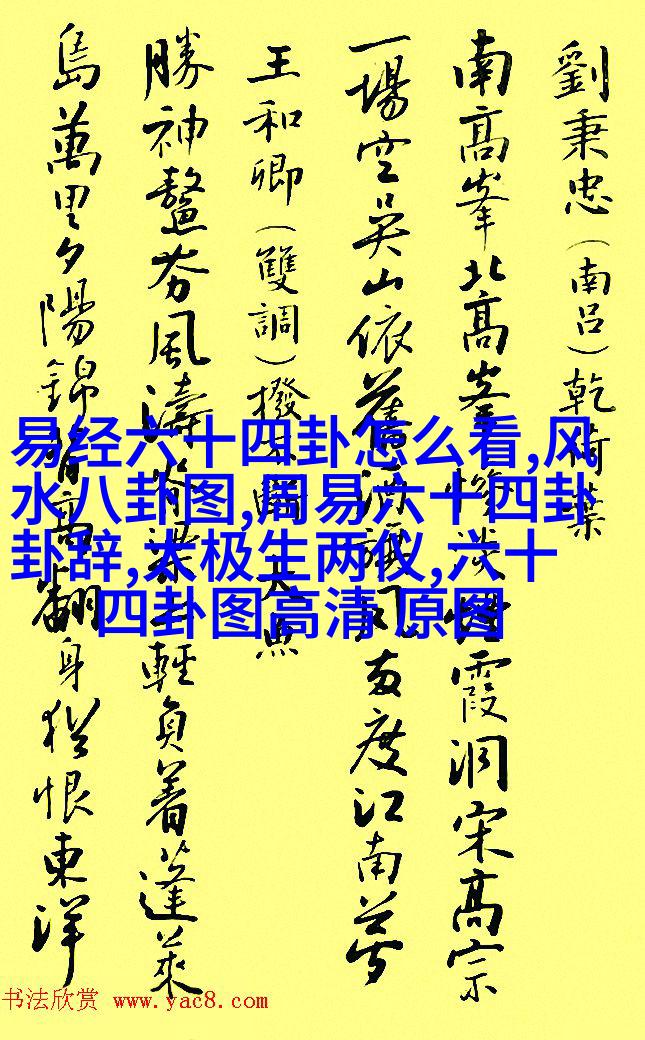 劉秉忠(南呂)乾荷葉
南高峯北高峯惨淡煙霞洞宋高宗
一場空吳山依舊酒旗风兩度江南夢
王和卿(雙調)撥不斷 大魚
勝神鰲夯風濤脊梁上輕負着蓬萊
島萬里夕陽錦背高翻身猶恨東洋
易经六十四卦怎么看,风
水八卦图,周易六十四卦
卦辞,太极生两仪,六十
四卦图高清 原图
书法欣赏 www.yac8.com